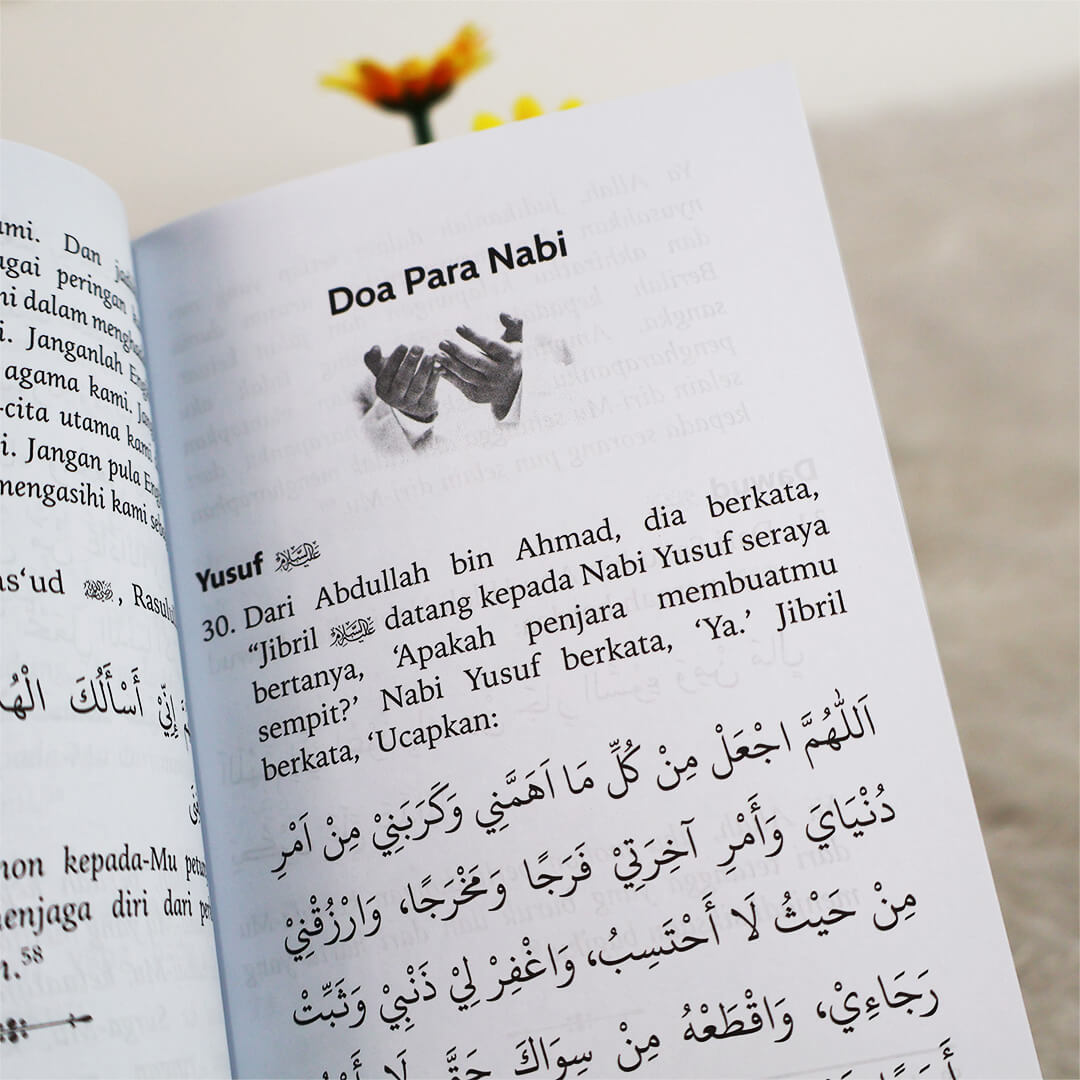 ami. Dan
agai peringan
ni dalam
i. Janganlah
agama kami.
-cita utama kami
i. Jangan pula
mengasihi kami
as‘ud ﷺ, Rasulu
إِنِّيْ أَسْأَلُكَ الْهُ
hon kepada-Mu
menjaga diri dari
n.⁵⁸
Doa Para Nabi
Yusuf عليه السلام
30. Dari Abdullah bin Ahmad, dia berkata,
“Jibril عليه السلام datang kepada Nabi Yusuf seraya
bertanya, ‘Apakah penjara membuatmu
sempit?’ Nabi Yusuf berkata, ‘Ya.’ Jibril
berkata, ‘Ucapkan:
اَللّٰهُمَّ اجْعَلْ مِنْ كُلِّ مَا اَهَمَّنِي وَكَرَبَنِيْ مِنْ اَمْرِ
دُنْيَايَ وَأَمْرِ آخِرَتِيْ فَرَجًا وَمَخْرَجًا، وَارْزُقْنِيْ
مِنْ حَيْثُ لَا أَحْتَسِبُ، وَاغْفِرْ لِيْ ذَنْبِيْ وَثَبِّتْ
رَجَاءِيْ، وَاقْطَعْهُ مِنْ سِوَاكَ حَتَّى لَا